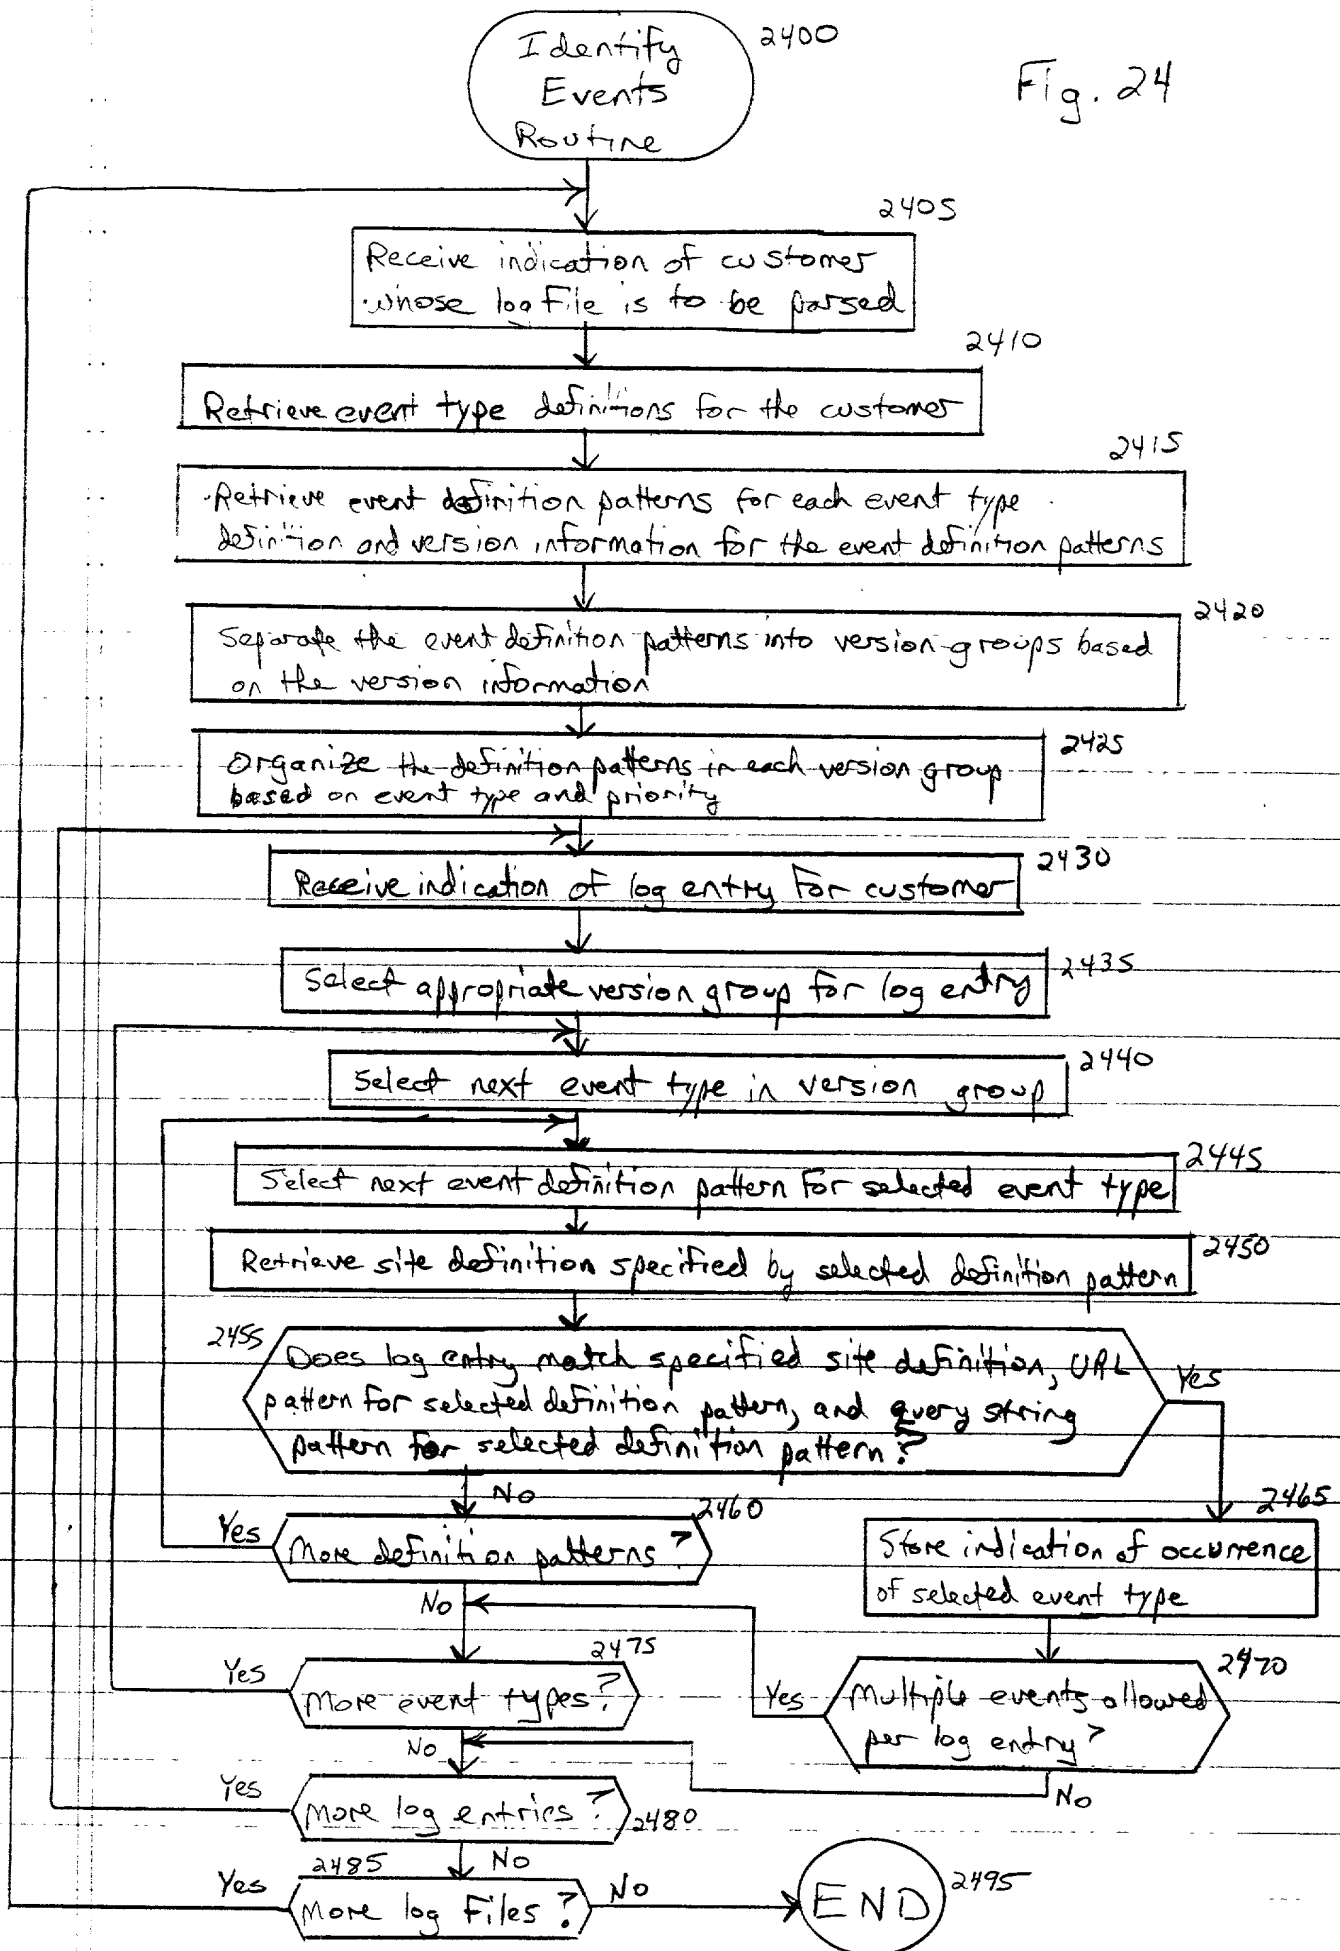 Identify
Events
Routine
2400
Fig. 24
2405
Receive indication of customer
whose log File is to be parsed
2410
Retrieve event type definitions for the customer
2415
Retrieve event definition patterns for each event type
definition and version information for the event definition patterns
2420
Separate the event definition patterns into version groups based
on the version information
2425
Organize the definition patterns in each version group
based on event type and priority
2430
Receive indication of log entry for customer
2435
Select appropriate version group for log entry
2440
Select next event type in version group
2445
Select next event definition pattern for selected event type
2450
Retrieve site definition specified by selected definition pattern
2455
Does log entry match specified site definition, URL
pattern for selected definition pattern, and query string
pattern for selected definition pattern?
Yes
No
2460
Yes
More definition patterns?
No
2465
Store indication of occurrence
of selected event type
2475
Yes
More event types?
No
2470
Yes
Multiple events allowed
per log entry?
No
Yes
More log entries?
2480
No
2485
Yes
More log Files?
No
END
2495